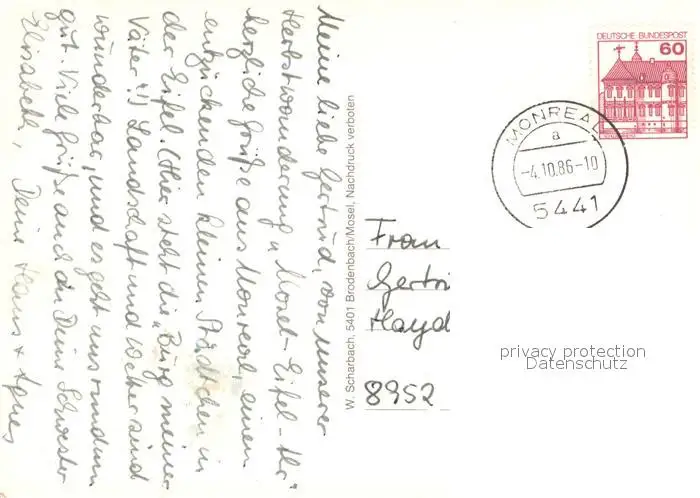 Meine liebe Gertrud, von unserer
Herbstwanderung u. Mosel-Eifel-
herzliche Grüße aus Monreal, einem
entzückenden kleinen Städtchen in
der Eifel. (Hier steht die „Burg meiner
Väter"!) Landschaft und Wetter sind
wunderbar, und es geht uns rundum
gut. Viele Grüße auch an Deine Schwester
Elisabeth, Deine Hans + Agnes
W. Scharbach, 5401 Brodenbach/Mosel, Nachdruck verboten
DEUTSCHE BUNDESPOST
60
MONREAL
a
-4.10.86-10
5441
Frau
Gertr
Hayd
8952
privacy protection
Datenschutz